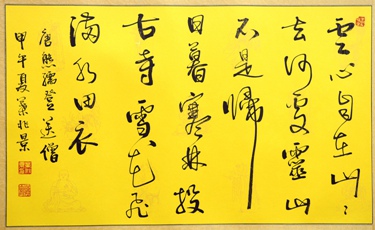 雲心自在山々
去何處靈山
不是歸
日暮寒林投
古寺雪花飛
滿水田衣
唐熊孺登送僧
甲午夏景